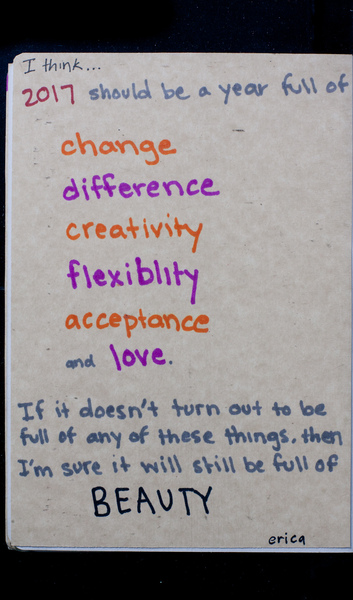 I think...
2017 should be a year full of
change
difference
creativity
flexiblity
acceptance
and love.
If it doesn't turn out to be
full of any of these things, then
I'm sure it will still be full of
BEAUTY
erica